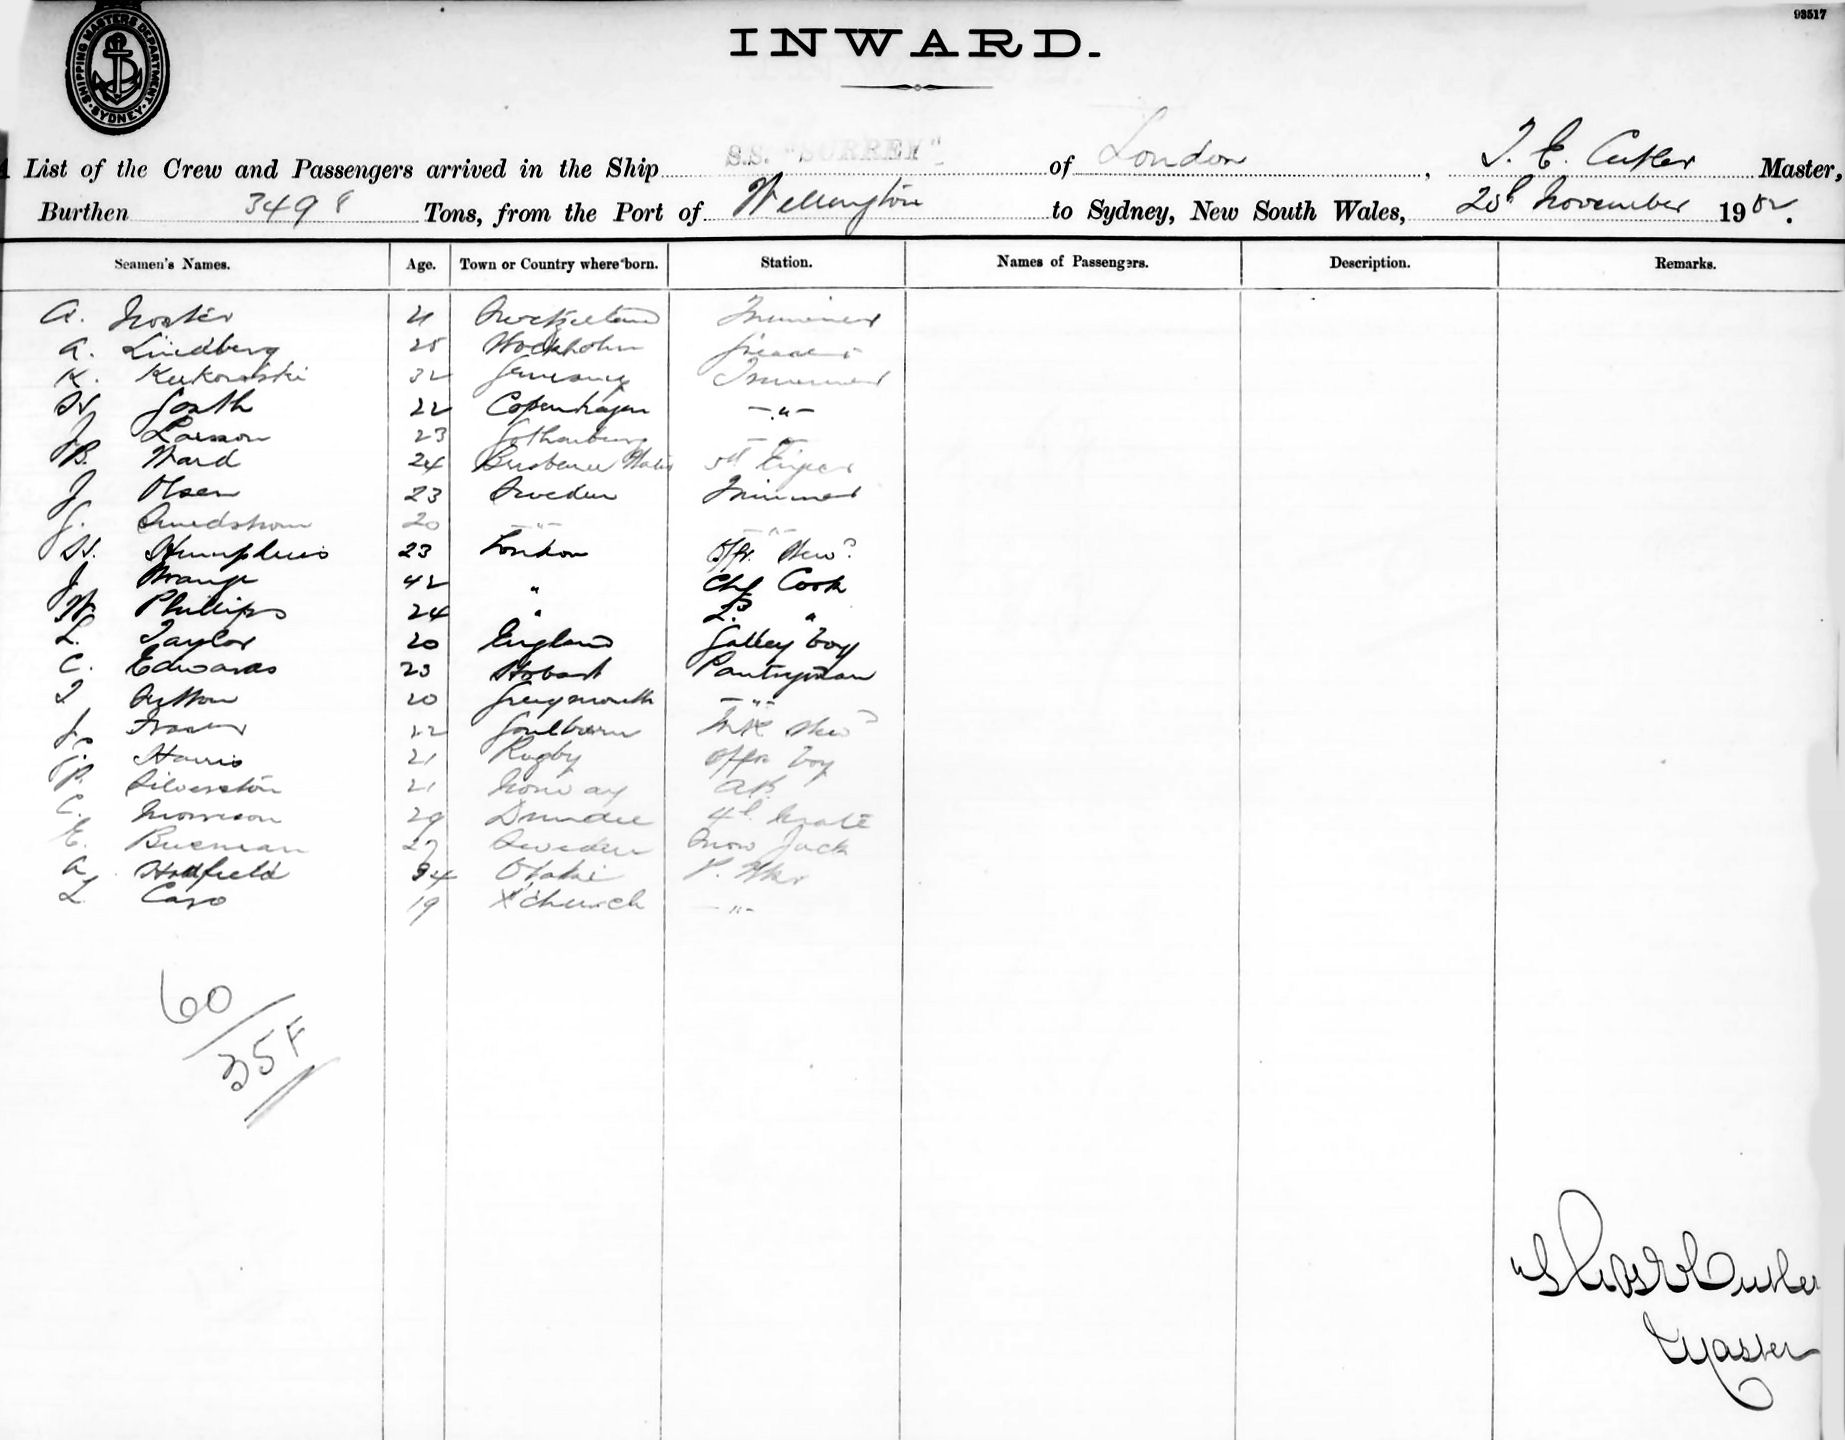 93517
SHIPPING MASTERS DEPARTMENT SYDNEY
INWARD.
List of the Crew and Passengers arrived in the Ship S.S. "SURREY" of London, T. E. Cutler Master,
Burthen 3498 Tons, from the Port of Wellington to Sydney, New South Wales, 20th November 1902.
Seamen's Names. Age. Town or Country where born. Station. Names of Passengers. Description. Remarks.
A. Trimmer
A. Lindberg 25 Stockholm
K. 32 Germany Trimmer
22 Copenhagen -"-
J. Larsson 23 Gothenburg -"-
B. Ward 24
J. Olsen 23 Sweden Trimmer
20 -"- -"-
H. Humphries 23 London Offr. Stewd
J. 42 " Chf Cook
W. Phillips 24 " 2nd "
L. Taylor 20 England Galley boy
C. Edwards 23 Hobart Pantryman
T. Sutton 20 Greymouth -"-
J. Fraser 22 Goulburn Stewd
J. Harris 21 Rugby Offrs boy
P. Silverston 21 Norway AB
C. Morrison 29 Dundee 4th Mate
E. Sweden Snow Jack
A. Hadfield 34 Otaki
L. 19 X'church -"-
60
35F
Cutler
Master